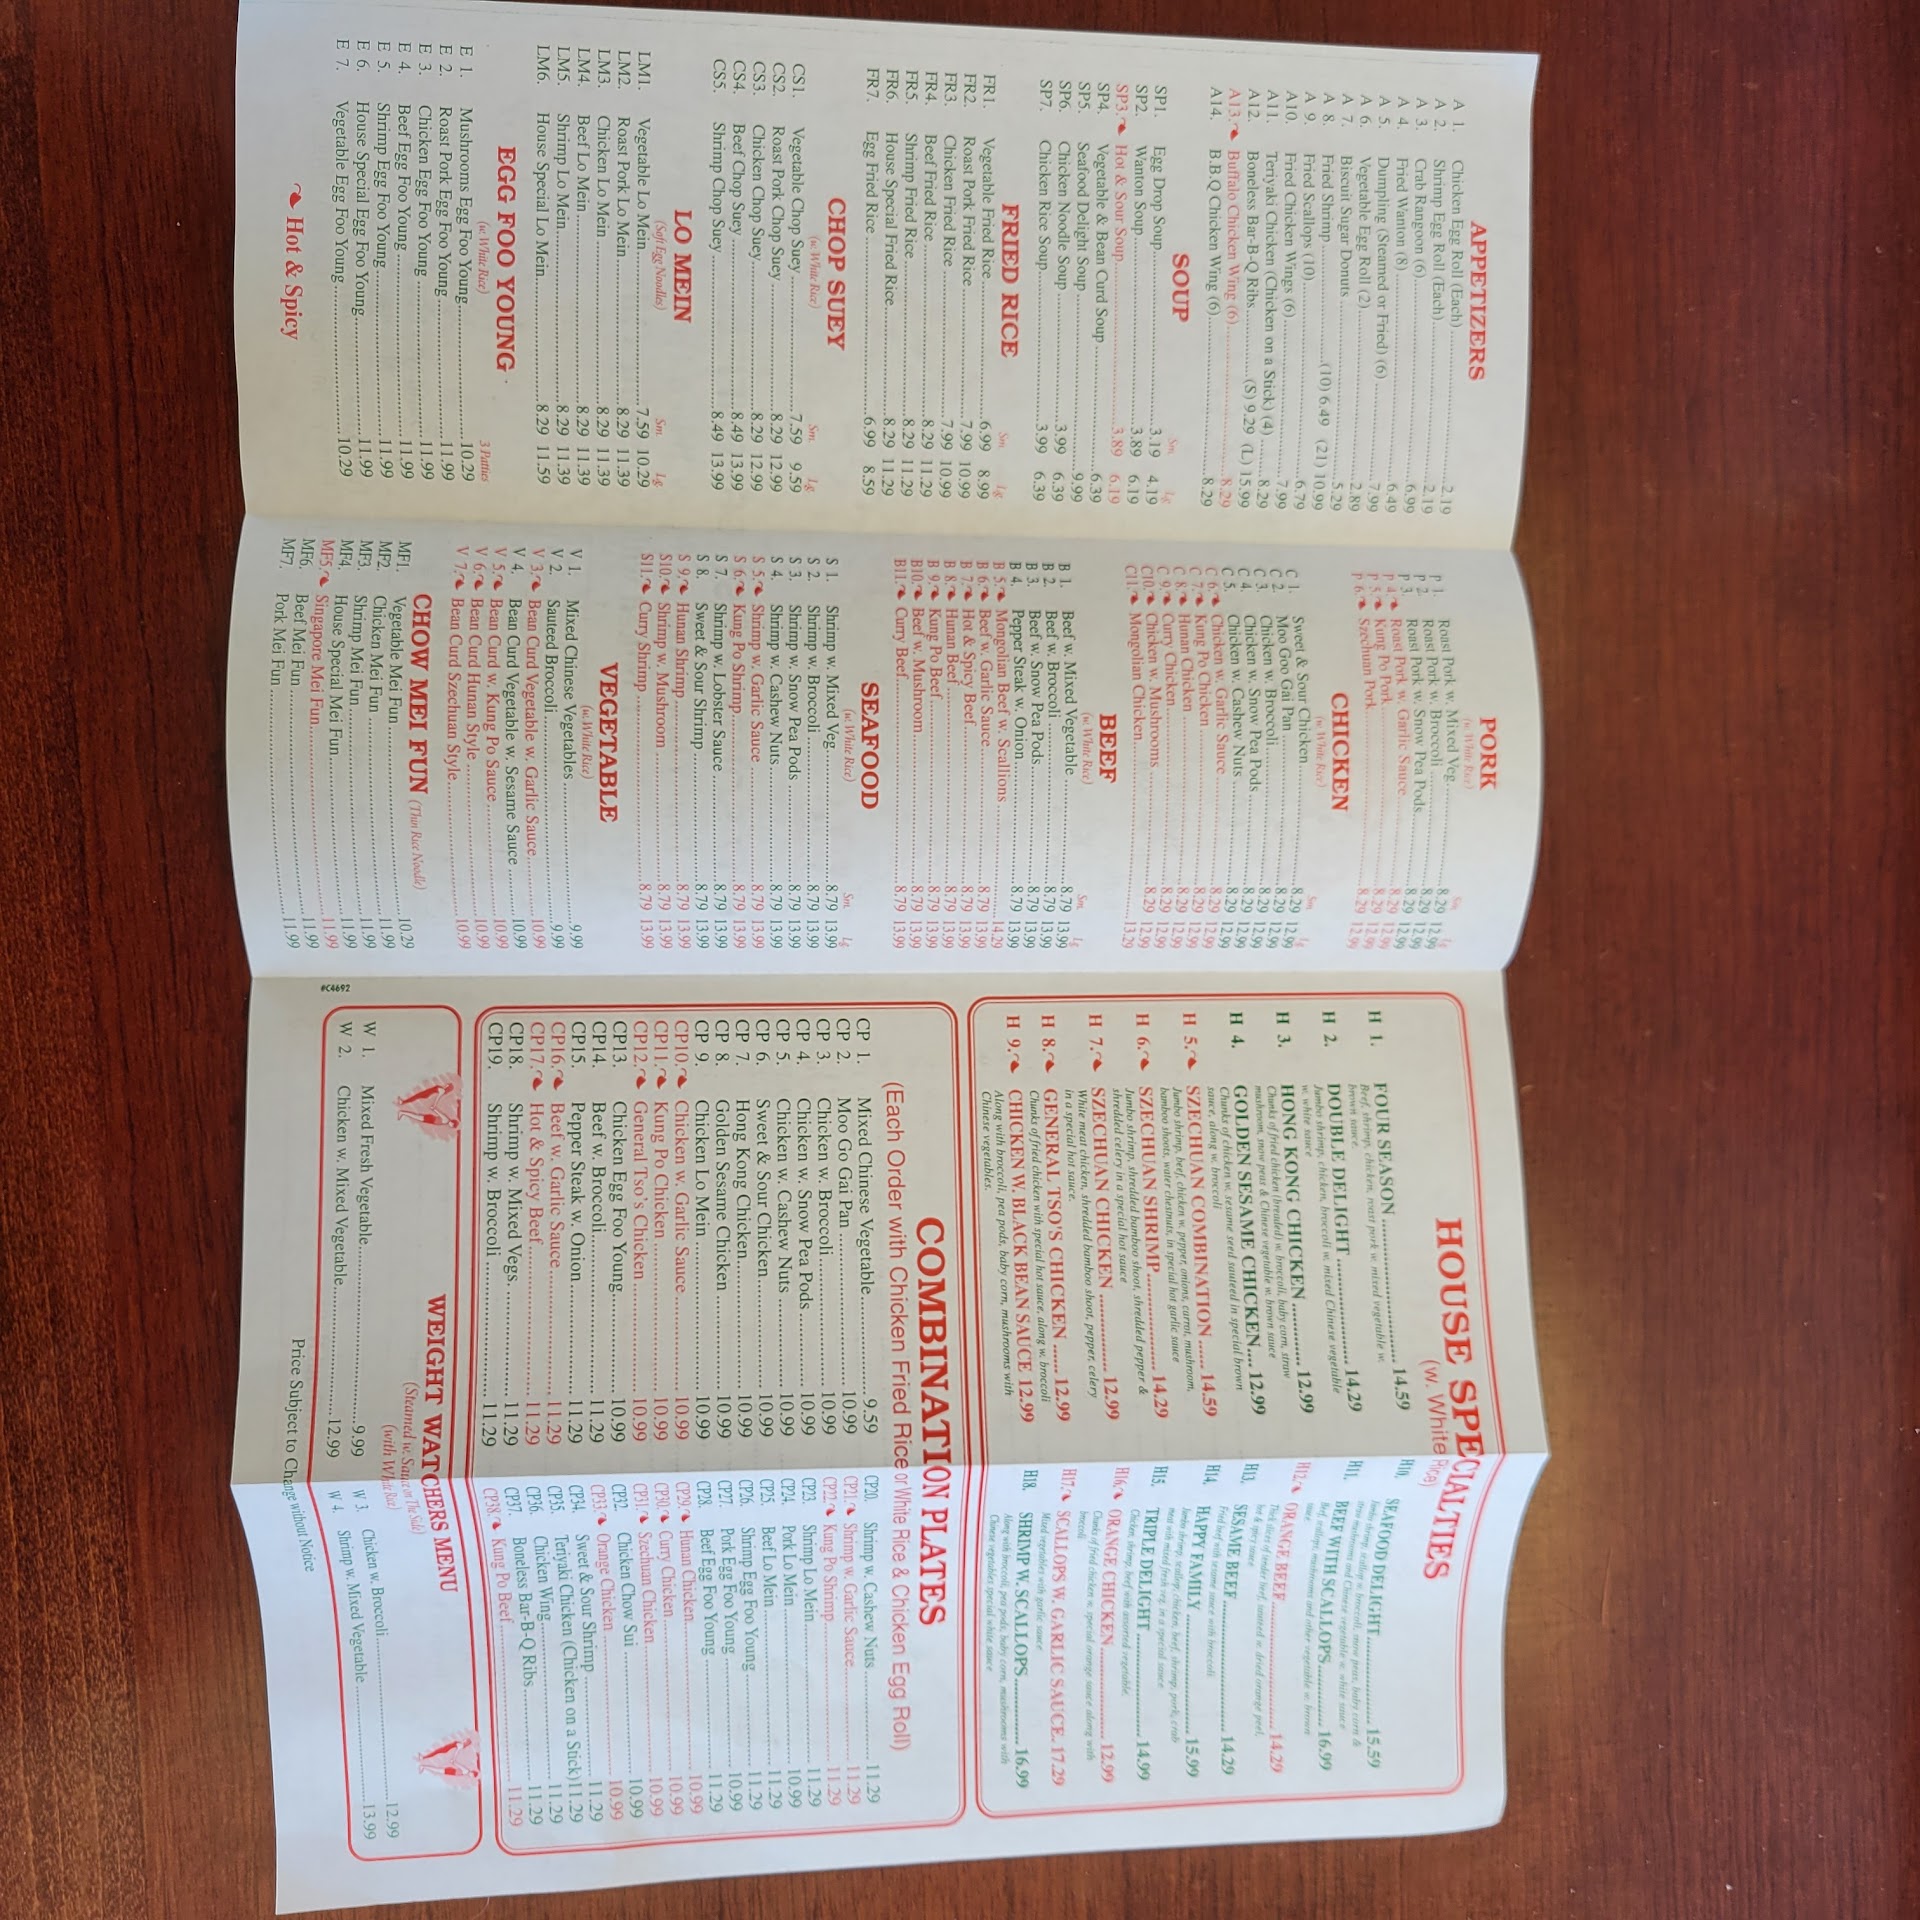 APPETIZERS
A 1. Chicken Egg Roll (Each) 2.19
A 2. Shrimp Egg Roll (Each) 2.19
A 3. Crab Rangoon (6) 6.99
A 4. Fried Wanton (8) 6.49
A 5. Dumpling (Steamed or Fried) (6) 7.99
A 6. Vegetable Egg Roll (2) 2.89
A 7. Biscuit Sugar Donuts 5.29
A 8. Fried Shrimp (10) 6.49 (21) 10.99
A 9. Fried Scallops (10) 6.79
A10. Fried Chicken Wings (6) 7.99
A11. Teriyaki Chicken (Chicken on a Stick) (4) 8.29
A12. Boneless Bar-B-Q Ribs (S) 9.29 (L) 15.99
A13. Buffalo Chicken Wing (6) 8.29
A14. B.B.Q Chicken Wing (6) 8.29
SOUP
Sm. Lg.
SP1. Egg Drop Soup 3.19 4.19
SP2. Wanton Soup 3.89 6.19
SP3. Hot & Sour Soup 3.89 6.19
SP4. Vegetable & Bean Curd Soup 6.39
SP5. Seafood Delight Soup 9.99
SP6. Chicken Noodle Soup 3.99 6.39
SP7. Chicken Rice Soup 3.99 6.39
FRIED RICE
Sm. Lg.
FR1. Vegetable Fried Rice 6.99 8.99
FR2. Roast Pork Fried Rice 7.99 10.99
FR3. Chicken Fried Rice 7.99 10.99
FR4. Beef Fried Rice 8.29 11.29
FR5. Shrimp Fried Rice 8.29 11.29
FR6. House Special Fried Rice 8.29 11.29
FR7. Egg Fried Rice 6.99 8.59
CHOP SUEY
(w. White Rice)
Sm. Lg.
CS1. Vegetable Chop Suey 7.59 9.59
CS2. Roast Pork Chop Suey 8.29 12.99
CS3. Chicken Chop Suey 8.29 12.99
CS4. Beef Chop Suey 8.49 13.99
CS5. Shrimp Chop Suey 8.49 13.99
LO MEIN
(Soft Egg Noodles)
Sm. Lg.
LM1. Vegetable Lo Mein 7.59 10.29
LM2. Roast Pork Lo Mein 8.29 11.39
LM3. Chicken Lo Mein 8.29 11.39
LM4. Beef Lo Mein 8.29 11.39
LM5. Shrimp Lo Mein 8.29 11.39
LM6. House Special Lo Mein 8.29 11.59
EGG FOO YOUNG
(w. White Rice)
3 Patties
E 1. Mushrooms Egg Foo Young 10.29
E 2. Roast Pork Egg Foo Young 11.99
E 3. Chicken Egg Foo Young 11.99
E 4. Beef Egg Foo Young 11.99
E 5. Shrimp Egg Foo Young 11.99
E 6. House Special Egg Foo Young 11.99
E 7. Vegetable Egg Foo Young 10.29
Hot & Spicy
PORK
(w. White Rice)
Sm. Lg.
P 1. Roast Pork w. Mixed Veg 8.29 12.99
P 2. Roast Pork w. Broccoli 8.29 12.99
P 3. Roast Pork w. Snow Pea Pods 8.29 12.99
P 4. Roast Pork w. Garlic Sauce 8.29 12.99
P 5. Kung Po Pork 8.29 12.99
P 6. Szechuan Pork 8.29 12.99
CHICKEN
(w. White Rice)
Sm. Lg.
C 1. Sweet & Sour Chicken 8.29 12.99
C 2. Moo Goo Gai Pan 8.29 12.99
C 3. Chicken w. Broccoli 8.29 12.99
C 4. Chicken w. Snow Pea Pods 8.29 12.99
C 5. Chicken w. Cashew Nuts 8.29 12.99
C 6. Chicken w. Garlic Sauce 8.29 12.99
C 7. Kung Po Chicken 8.29 12.99
C 8. Hunan Chicken 8.29 12.99
C 9. Curry Chicken 8.29 12.99
C10. Chicken w. Mushrooms 8.29 12.99
C11. Mongolian Chicken 13.29
BEEF
(w. White Rice)
Sm. Lg.
B 1. Beef w. Mixed Vegetable 8.79 13.99
B 2. Beef w. Broccoli 8.79 13.99
B 3. Beef w. Snow Pea Pods 8.79 13.99
B 4. Pepper Steak w. Onion 8.79 13.99
B 5. Mongolian Beef w. Scallions 14.29
B 6. Beef w. Garlic Sauce 8.79 13.99
B 7. Hot & Spicy Beef 8.79 13.99
B 8. Hunan Beef 8.79 13.99
B 9. Kung Po Beef 8.79 13.99
B10. Beef w. Mushroom 8.79 13.99
B11. Curry Beef 8.79 13.99
SEAFOOD
(w. White Rice)
Sm. Lg.
S 1. Shrimp w. Mixed Veg. 8.79 13.99
S 2. Shrimp w. Broccoli 8.79 13.99
S 3. Shrimp w. Snow Pea Pods 8.79 13.99
S 4. Shrimp w. Cashew Nuts 8.79 13.99
S 5. Shrimp w. Garlic Sauce 8.79 13.99
S 6. Kung Po Shrimp 8.79 13.99
S 7. Shrimp w. Lobster Sauce 8.79 13.99
S 8. Sweet & Sour Shrimp 8.79 13.99
S 9. Hunan Shrimp 8.79 13.99
S10. Shrimp w. Mushroom 8.79 13.99
S11. Curry Shrimp 8.79 13.99
VEGETABLE
(w. White Rice)
V 1. Mixed Chinese Vegetables 9.99
V 2. Sauteed Broccoli 9.99
V 3. Bean Curd Vegetable w. Garlic Sauce 10.99
V 4. Bean Curd Vegetable w. Sesame Sauce 10.99
V 5. Bean Curd w. Kung Po Sauce 10.99
V 6. Bean Curd Hunan Style 10.99
V 7. Bean Curd Szechuan Style 10.99
CHOW MEI FUN (Thin Rice Noodle)
MF1. Vegetable Mei Fun 10.29
MF2. Chicken Mei Fun 11.99
MF3. Shrimp Mei Fun 11.99
MF4. House Special Mei Fun 11.99
MF5. Singapore Mei Fun 11.99
MF6. Beef Mei Fun 11.99
MF7. Pork Mei Fun 11.99
#C4692
HOUSE SPECIALTIES
(w. White Rice)
H 1. FOUR SEASON 14.59
Beef, shrimp, chicken, roast pork w. mixed vegetable w.
brown sauce.
H 2. DOUBLE DELIGHT 14.29
Jumbo shrimp, chicken, broccoli w. mixed Chinese vegetable
w. white sauce
H 3. HONG KONG CHICKEN 12.99
Chunks of fried chicken (breaded) w. broccoli, baby corn, straw
mushroom, snow peas & Chinese vegetable w. brown sauce
H 4. GOLDEN SESAME CHICKEN 12.99
Chunks of chicken w. sesame seed sauteed in special brown
sauce, along w. broccoli
H 5. SZECHUAN COMBINATION 14.59
Jumbo shrimp, beef, chicken w. pepper, onions, carrot, mushroom,
bamboo shoots, water chestnuts, in special hot garlic sauce
H 6. SZECHUAN SHRIMP 14.29
Jumbo shrimp, shredded bamboo shoot, shredded pepper &
shredded celery in a special hot sauce
H 7. SZECHUAN CHICKEN 12.99
White meat chicken, shredded bamboo shoot, pepper, celery
in a special hot sauce.
H 8. GENERAL TSO'S CHICKEN 12.99
Chunks of fried chicken with special hot sauce, along w. broccoli
H 9. CHICKEN W. BLACK BEAN SAUCE 12.99
Along with broccoli, pea pods, baby corn, mushrooms with
Chinese vegetables.
H10. SEAFOOD DELIGHT 15.59
Jumbo shrimp, scallop w. broccoli, snow peas, baby corn &
straw mushrooms and Chinese vegetable w. white sauce
H11. BEEF WITH SCALLOPS 16.99
Beef, scallops, mushrooms and other vegetable w. brown
sauce.
H12. ORANGE BEEF 14.29
Thick slices of tender beef, sauteed w. dried orange peel,
hot & spicy sauce
H13. SESAME BEEF 14.29
Fried beef with sesame sauce with broccoli
H14. HAPPY FAMILY 15.99
Jumbo shrimp, scallop, chicken, beef, shrimp, pork, crab
meat with mixed fresh veg. in a special sauce.
H15. TRIPLE DELIGHT 14.99
Chicken, shrimp, beef with assorted vegetable.
H16. ORANGE CHICKEN 12.99
Chunks of fried chicken w. special orange sauce along with
broccoli
H17. SCALLOPS W. GARLIC SAUCE 17.29
Mixed vegetables with garlic sauce
H18. SHRIMP W. SCALLOPS 16.99
Along with broccoli, pea pods, baby corn, mushrooms with
Chinese vegetables special white sauce
COMBINATION PLATES
(Each Order with Chicken Fried Rice or White Rice & Chicken Egg Roll)
CP 1. Mixed Chinese Vegetable 9.59
CP 2. Moo Go Gai Pan 10.99
CP 3. Chicken w. Broccoli 10.99
CP 4. Chicken w. Snow Pea Pods 10.99
CP 5. Chicken w. Cashew Nuts 10.99
CP 6. Sweet & Sour Chicken 10.99
CP 7. Hong Kong Chicken 10.99
CP 8. Golden Sesame Chicken 10.99
CP 9. Chicken Lo Mein 10.99
CP10. Chicken w. Garlic Sauce 10.99
CP11. Kung Po Chicken 10.99
CP12. General Tso's Chicken 10.99
CP13. Chicken Egg Foo Young 10.99
CP14. Beef w. Broccoli 11.29
CP15. Pepper Steak w. Onion 11.29
CP16. Beef w. Garlic Sauce 11.29
CP17. Hot & Spicy Beef 11.29
CP18. Shrimp w. Mixed Vegs. 11.29
CP19. Shrimp w. Broccoli 11.29
CP20. Shrimp w. Cashew Nuts 11.29
CP21. Shrimp w. Garlic Sauce 11.29
CP22. Kung Po Shrimp 11.29
CP23. Shrimp Lo Mein 11.29
CP24. Pork Lo Mein 10.99
CP25. Beef Lo Mein 11.29
CP26. Shrimp Egg Foo Young 11.29
CP27. Pork Egg Foo Young 10.99
CP28. Beef Egg Foo Young 11.29
CP29. Hunan Chicken 10.99
CP30. Curry Chicken 10.99
CP31. Szechuan Chicken 10.99
CP32. Chicken Chow Sui 10.99
CP33. Orange Chicken 10.99
CP34. Sweet & Sour Shrimp 11.29
CP35. Teriyaki Chicken (Chicken on a Stick) 11.29
CP36. Chicken Wing 11.29
CP37. Boneless Bar-B-Q Ribs 11.29
CP38. Kung Po Beef 11.29
WEIGHT WATCHERS MENU
(Steamed w. Sauce on The Side)
(with White Rice)
W 1. Mixed Fresh Vegetable 9.99
W 2. Chicken w. Mixed Vegetable 12.99
W 3. Chicken w. Broccoli 12.99
W 4. Shrimp w. Mixed Vegetable 13.99
Price Subject to Change without Notice